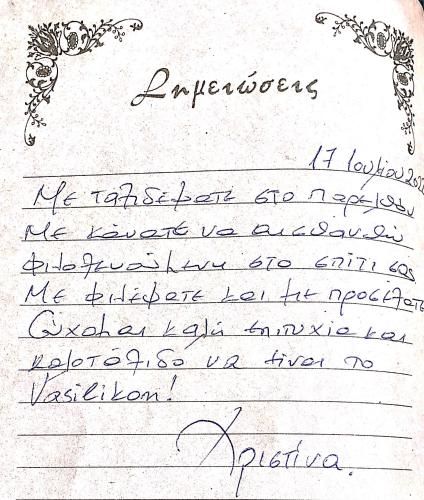 Σημειώσεις
17 Ιουλίου
Με ταξιδέψατε στο παρελθόν
Με κάνατε να αισθανθώ
φιλοξενούμενη στο σπίτι σας
Με φιλέψατε και με προσέξατε
Εύχομαι καλή επιτυχία και
καλοτάξιδο να είναι το
Vasilikon!
Χριστίνα.